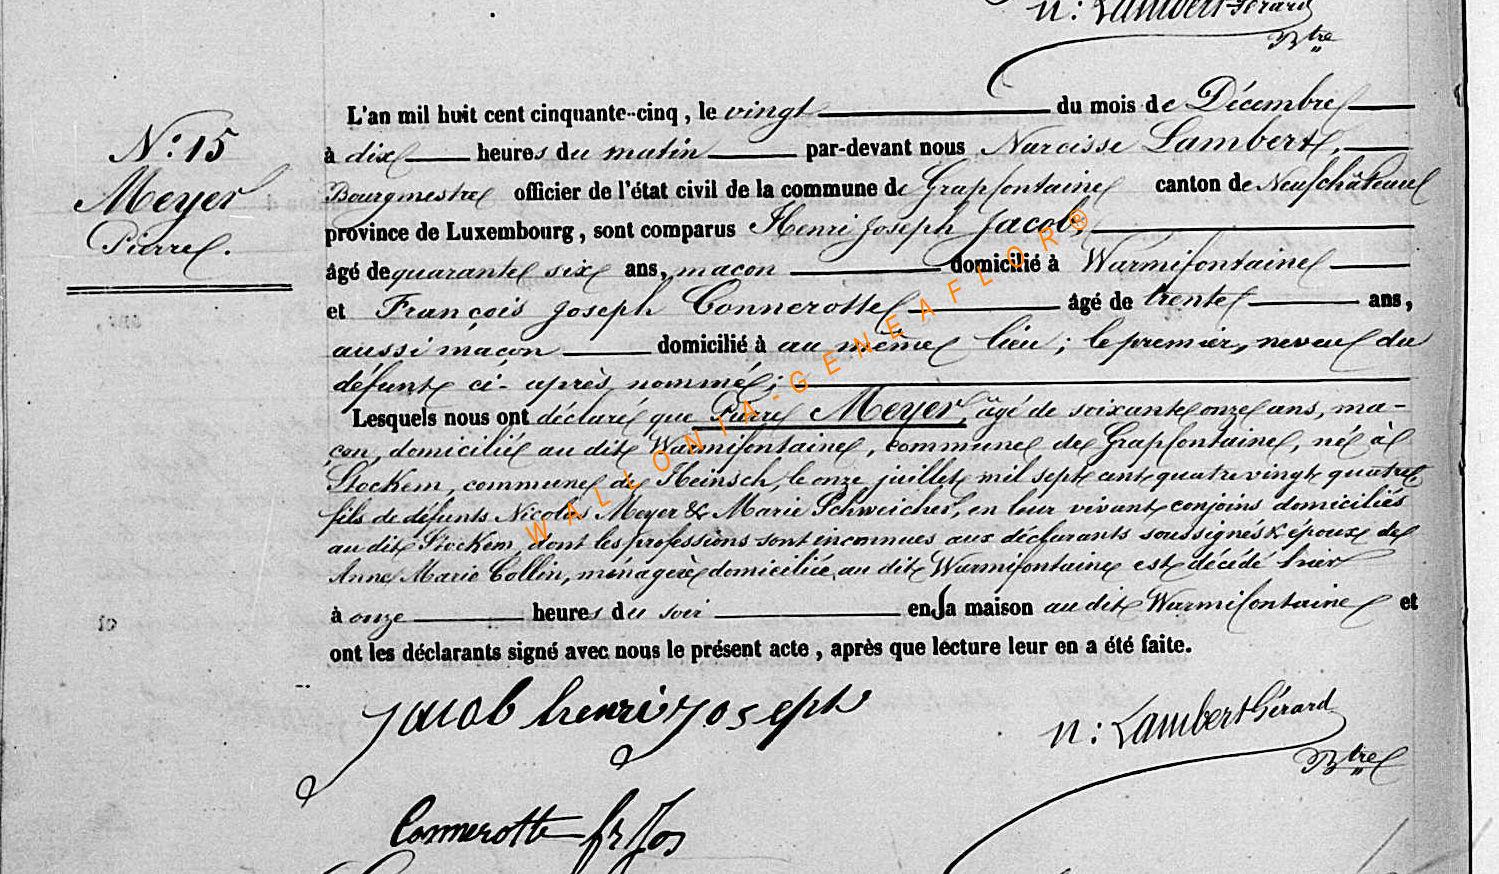 n: Lambert-Gérard
Btre
L'an mil huit cent cinquante-cinq, le vingt du mois de Décembre
N: 15
à dix heures du matin par-devant nous Narcisse Lambert,
Meyer
Bourgmestre officier de l'état civil de la commune de Grapfontaine canton de Neufchâteau
Pierre.
province de Luxembourg, sont comparus Henri Joseph Jacob,
âgé de quarante six ans, macon domicilié à Warmifontaine
et François Joseph Connerotte âgé de trente ans,
aussi maçon domicilié à au même lieu; le premier, neveu du
défunt ci-après nommé;
Lesquels nous ont déclaré que Pierre Meyer, âgé de soixante onze ans, ma-
çon, domicilié au dit Warmifontaine, commune de Grapfontaine, né à
Stockem, commune de Heinsch, le onze juillet mil sept cent quatre vingt quatre
fils de défunts Nicolas Meyer & Marie Schweicher, en leur vivant conjoins domiciliés
au dit Stockem, dont les professions sont inconnues aux déclarants soussignés & époux de
Anne Marie Collin, ménagère domiciliée au dit Warmifontaine est décédé hier
à onze heures du soir en sa maison au dit Warmifontaine et
ont les déclarants signé avec nous le présent acte, après que lecture leur en a été faite.
Jacob henri joseph
n: Lambert Gérard
Btre
Connerotte fr Jos
WALLONIA-GENEAFLOR®